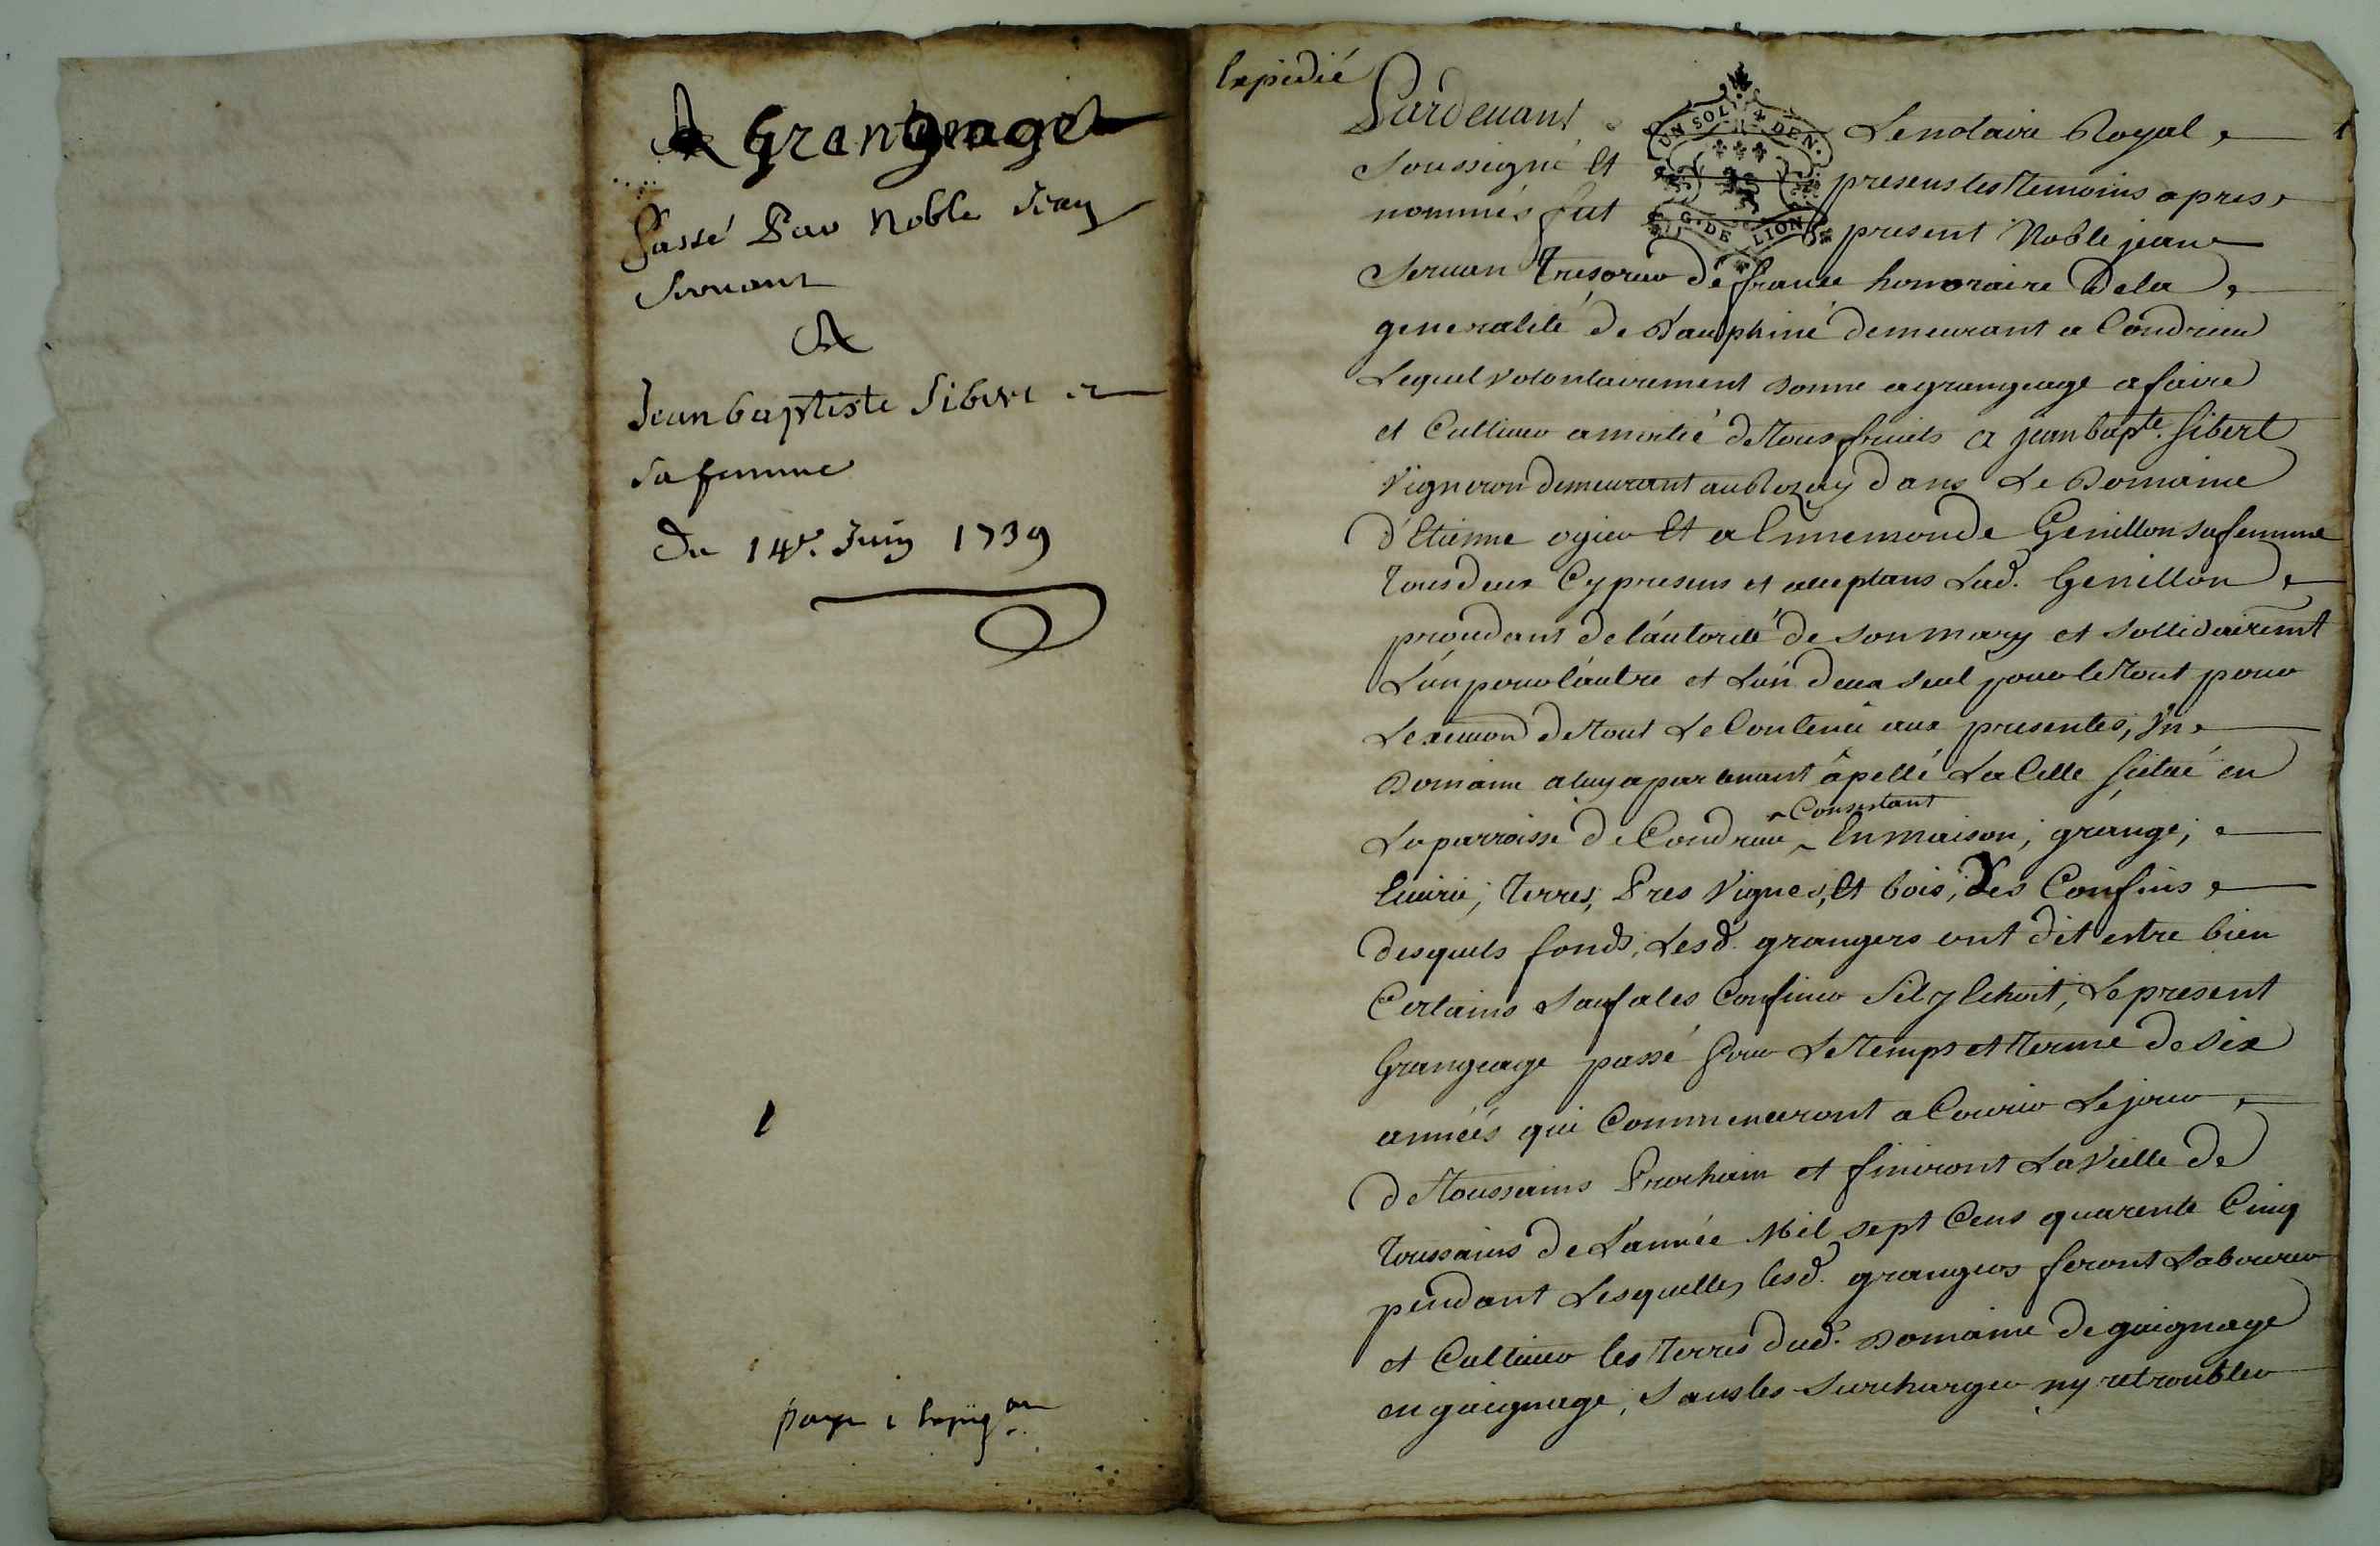 Grangeage
Passé Par Noble Jean
Servant
A
Jean baptiste Sibert et
sa femme
Du 14e. Juin 1739
1
payé l'expég.on
Expedié
Pardevant Le notaire Royal
UN SOL 4 DEN.
G. DE LION
soussigné Et presens les temoins apres
nommés fut present Noble jean
Servan Tresorier de france honoraire de la
generalité de Dauphiné demeurant a Condrieu
Lequel volontairement donne a grangeage a faire
et Cultiver a moitié de tous fruits a jean bapte. sibert
Vigneron demeurant au Rozay dans Le Domaine
d'Etienne ogier Et a Ennemonde Genillon sa femme
tous deux Cy presens et aceptans Lad. Genillon
procedant de l'autorité de son mary et sollidairemt
L'un pour l'autre et L'un deux seul pour le tout pour
Lexecution de tout Le Contenu aux presentes, Un
Domaine a luy apartenant apellé La Celle situé en
La parroisse de Condrieu, Consistant En maison, grange,
Ecurie, terres, Pres Vignes, Et bois, Des Confins
desquels fonds, Lesd. grangers ont dit estre bien
Certains sauf a les Confiner sil y Echoit, Le present
Grangeage passé pour Le temps et terme de six
années qui Commenceront a Courir Le jour
de toussains Prochain et finiront La Veille de
toussains de L'année Mil sept Cens quarente Cinq
pendant Lesquelles lesd. grangers feront Labourer
et Cultiver les terres dud. Domaine de gaignage
en gaignage, sans les surcharger ny retroubler